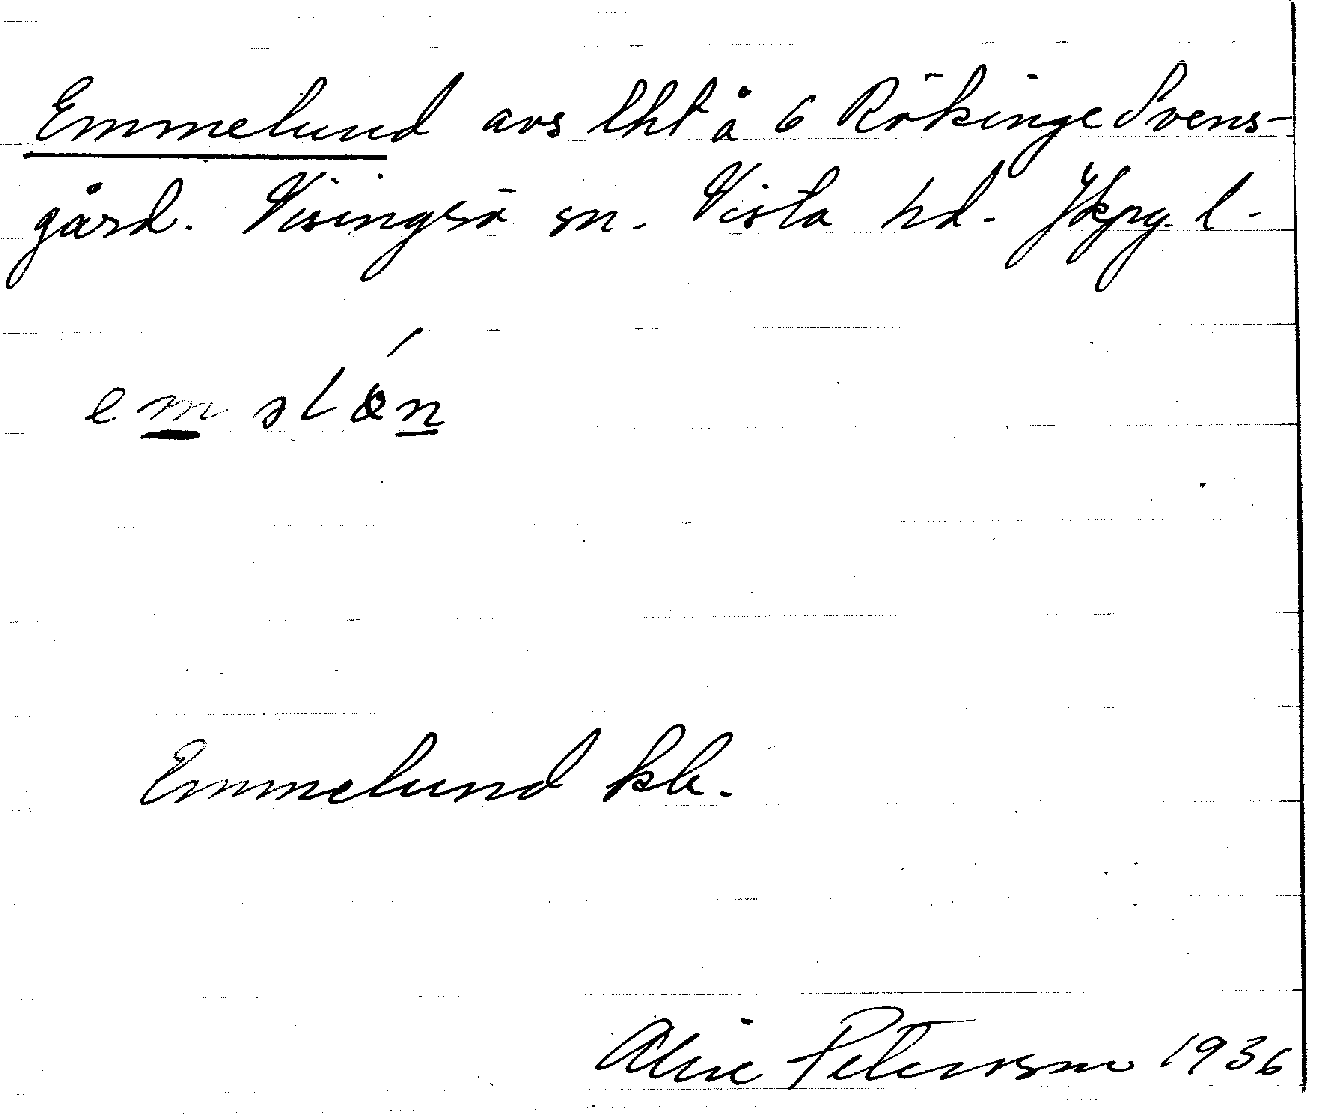 Emmelund avs lht å 6 Rökinge Svens-
gård. Visingsö sn. Vista hd. Jkpg. l.
Emmelund kb.
Petersson 1936